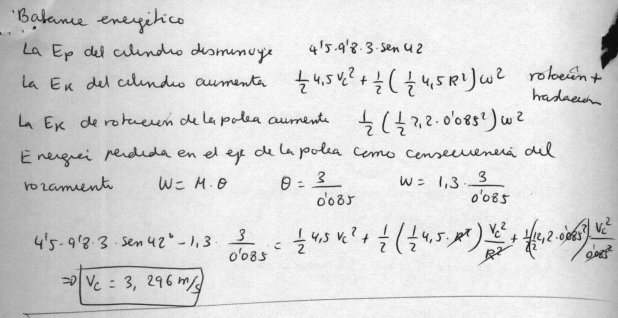 Balance energético
La Ep del cilindro disminuye 4'5·9'8·3·sen 42
La Ek del cilindro aumenta 1/2 4,5 Vc² + 1/2 (1/2 4,5 R²) ω² rotación +
traslación
La Ek de rotación de la polea aumenta 1/2 (1/2 2,2·0'085²) ω²
Energía perdida en el eje de la polea como consecuencia del
rozamiento W = M·θ θ = 3/0'085 W = 1,3·3/0'085
4'5·9'8·3·sen 42° - 1,3·3/0'085 = 1/2 4,5 Vc² + 1/2 (1/2 4,5·R²) Vc²/R² + 1/2 (1/2 2,2·0'085²) Vc²/0'085²
⇒ Vc = 3,296 m/s